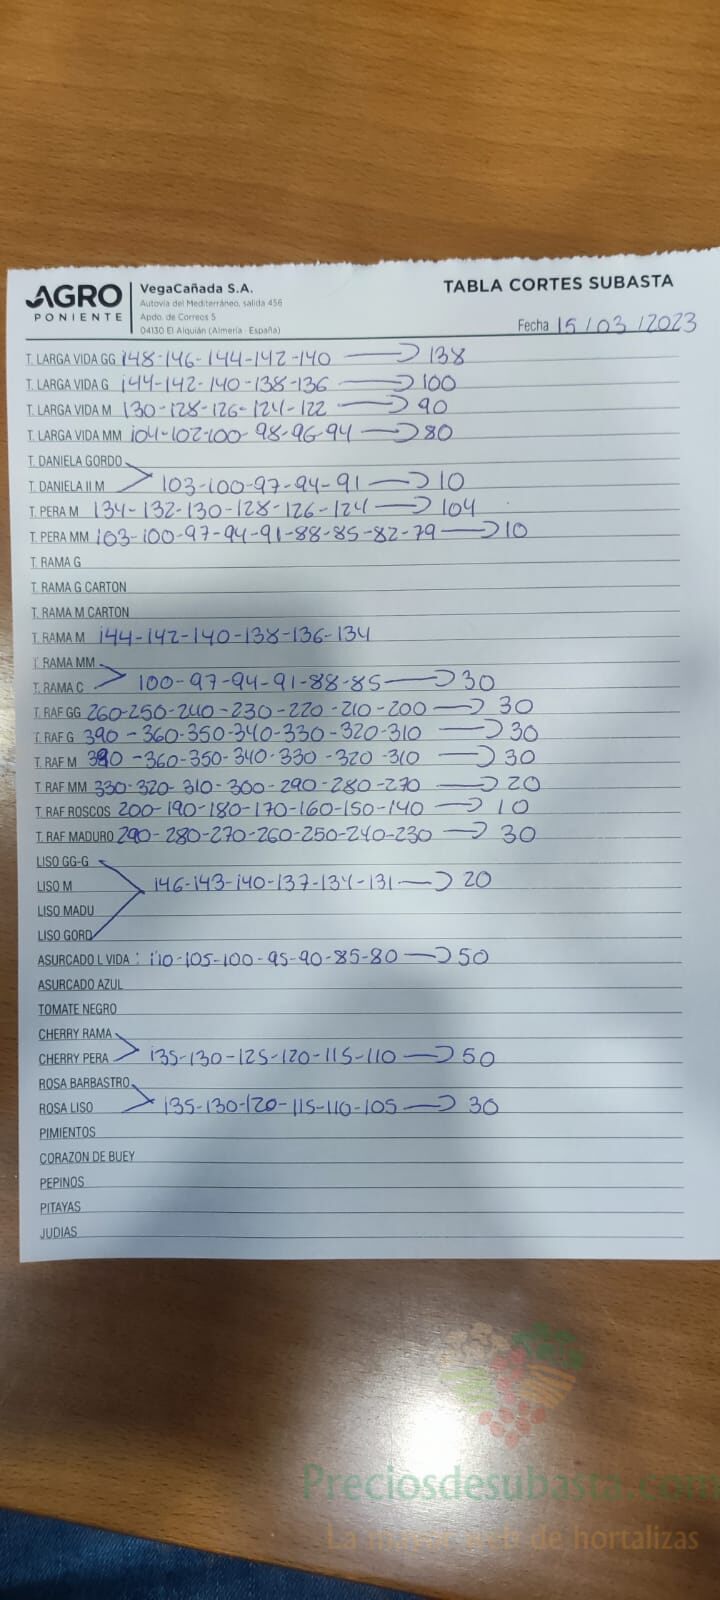 AGRO PONIENTE
VegaCañada S.A.
Autovía del Mediterráneo, salida 456
Apdo. de Correos 5
04130 El Alquián (Almería - España)
TABLA CORTES SUBASTA
Fecha 15/03/2023
T. LARGA VIDA GG 148-146-144-142-140 → 138
T. LARGA VIDA G 144-142-140-138-136 → 100
T. LARGA VIDA M 130-128-126-124-122 → 90
T. LARGA VIDA MM 104-102-100-98-96-94 → 80
T. DANIELA GORDO
T. DANIELA II M 103-100-97-94-91 → 10
T. PERA M 134-132-130-128-126-124 → 104
T. PERA MM 103-100-97-94-91-88-85-82-79 → 10
T. RAMA G
T. RAMA G CARTON
T. RAMA M CARTON
T. RAMA M 144-142-140-138-136-134
T. RAMA MM
T. RAMA C 100-97-94-91-88-85 → 30
T. RAF GG 260-250-240-230-220-210-200 → 30
T. RAF G 390-360-350-340-330-320-310 → 30
T. RAF M -360-350-340-330-320-310 → 30
T. RAF MM 330-320-310-300-290-280-270 → 20
T. RAF ROSCOS 200-190-180-170-160-150-140 → 10
T. RAF MADURO 290-280-270-260-250-240-230 → 30
LISO GG-G
LISO M 146-143-140-137-134-131 → 20
LISO MADU
LISO GORD
ASURCADO L VIDA : 110-105-100-95-90-85-80 → 50
ASURCADO AZUL
TOMATE NEGRO
CHERRY RAMA
CHERRY PERA 135-130-125-120-115-110 → 50
ROSA BARBASTRO
ROSA LISO 135-130-120-115-110-105 → 30
PIMIENTOS
CORAZON DE BUEY
PEPINOS
PITAYAS
JUDIAS
Preciosdesubasta.com
La mayor web de hortalizas